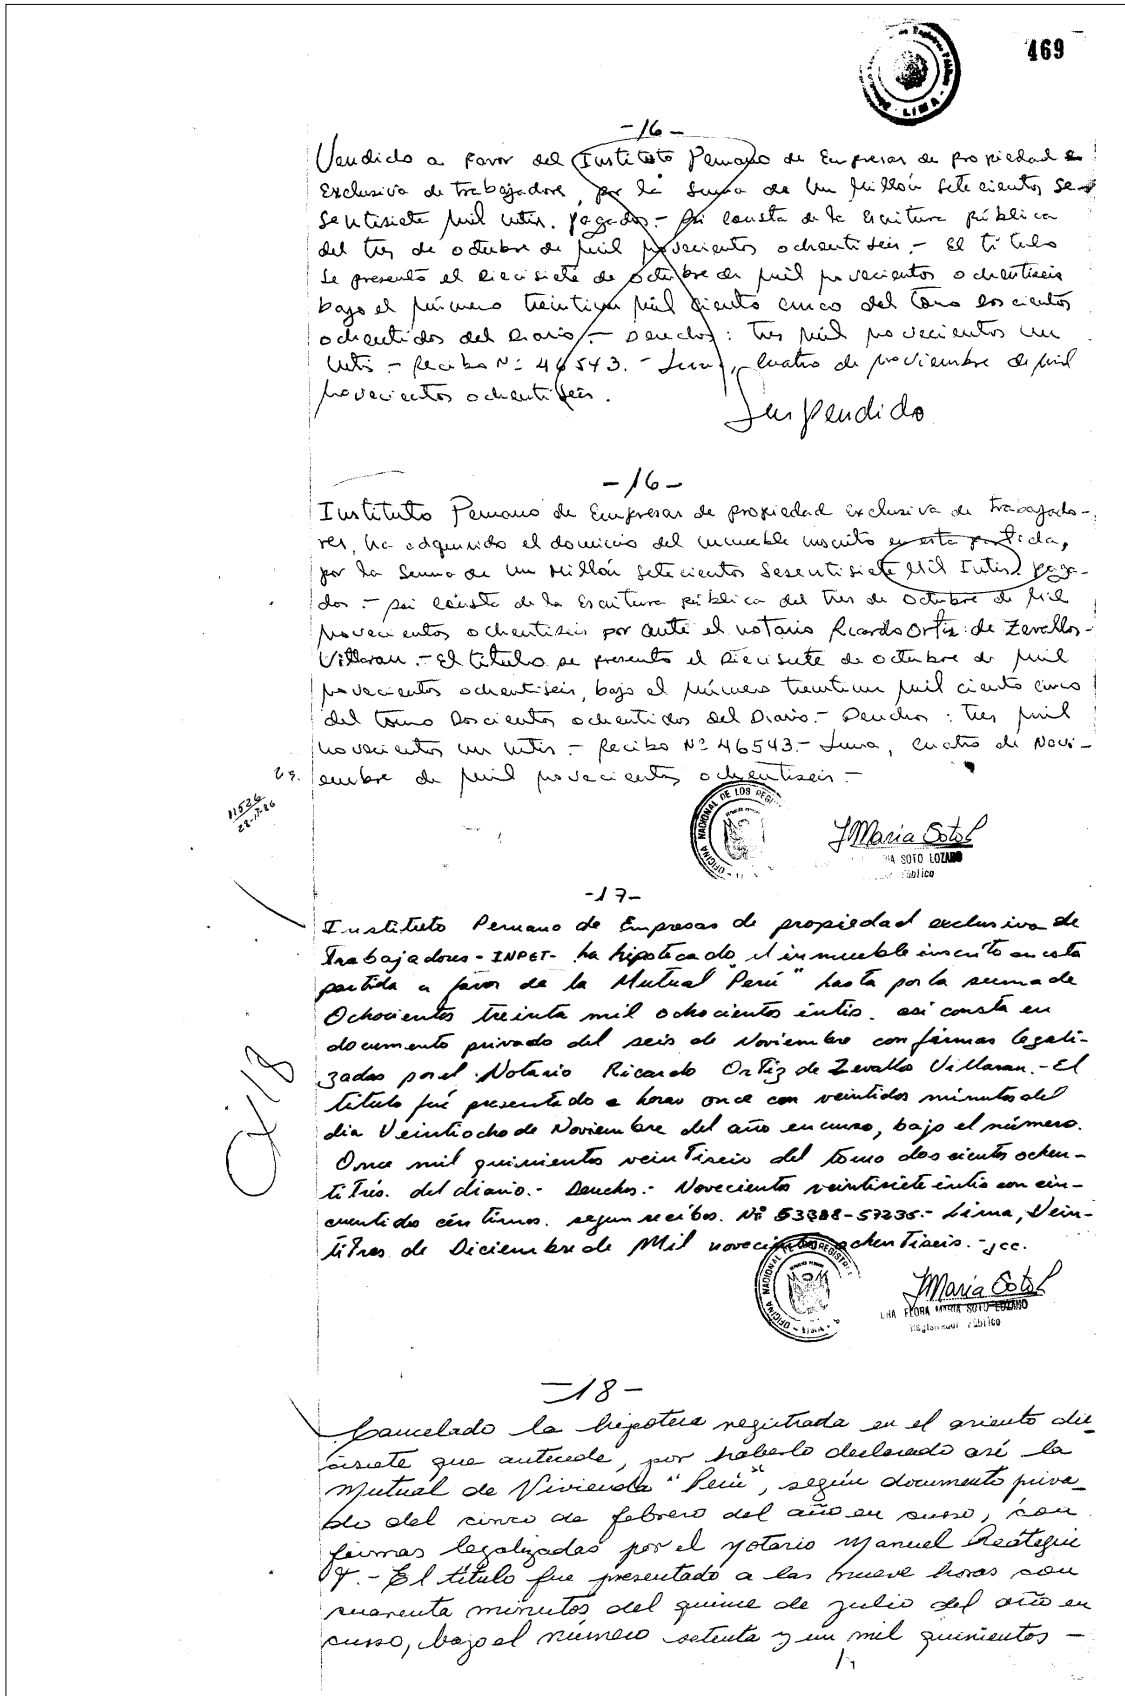 469
LIMA
-16-
Vendido a favor del Instituto Peruano de Empresas de propiedad
Exclusiva de trabajadores, por la suma de Un Millón setecientos se-
sentisiete mil intis. pagados.- Asi consta de la escritura pública
del tres de octubre de mil novecientos ochentiseis.- El titulo
se presentó el diecisiete de octubre de mil novecientos ochentiseis
bajo el número treintiun mil ciento cinco del tomo doscientos
ochentidos del Diario.- Derechos: tres mil novecientos un
intis - Recibo Nº 46543.- Lima, cuatro de noviembre de mil
novecientos ochentiseis.
Suspendido
-16-
Instituto Peruano de Empresas de propiedad exclusiva de trabajado-
res, ha adquirido el dominio del inmueble inscrito en esta partida,
por la suma de Un Millón setecientos sesentisiete Mil Intis. paga-
dos.- Asi consta de la escritura pública del tres de Octubre de Mil
novecientos ochentiseis por ante el notario Ricardo Ortiz de Zevallos
Villaran.- El título se presentó el diecisiete de octubre de mil
novecientos ochentiseis, bajo el número treintiun mil ciento cinco
del tomo doscientos ochentidos del Diario.- Derechos: tres mil
novecientos un intis - Recibo Nº 46543.- Lima, cuatro de Novi-
embre de mil novecientos ochentiseis.-
11526
28-11-86
OFICINA NACIONAL DE LOS REGI
JMaria Soto L
SOTO LOZANO
Público
-17-
Instituto Peruano de Empresas de propiedad exclusiva de
Trabajadores-INPET- ha hipotecado el inmueble inscrito en esta
partida a favor de la Mutual "Perú" hasta por la suma de
Ochocientos treinta mil ochocientos intis. asi consta en
documento privado del seis de Noviembre con firmas legali-
zadas por el Notario Ricardo Ortiz de Zevallos Villaran.- El
titulo fué presentado a horas once con veintidos minutos del
dia Veintiocho de Noviembre del año en curso, bajo el número.
Once mil quinientos veintiseis del tomo doscientos ochen-
titrés. del diario.- Derechos.- Novecientos veintisiete intis con cin-
cuentidos céntimos. segun recibos. Nº 53988-57235.- Lima, Vein-
titres de Diciembre de Mil novecientos ochentiseis.- jcc.
C×18
OFICINA NACIONAL DE LOS REGISTR
JMaria Soto L
DRA FLORA MARIA SOTO LOZANO
Registrador Público
-18-
Cancelado la hipoteca registrada en el asiento die-
cisiete que antecede, por haberlo declarado asi la
Mutual de Vivienda "Perú", según documento priva-
do del cinco de febrero del año en curso, con
firmas legalizadas por el notario Manuel Reátegui
T.- El título fue presentado a las nueve horas con
cuarenta minutos del quince de julio del año en
curso, bajo el número setenta y un mil quinientos -